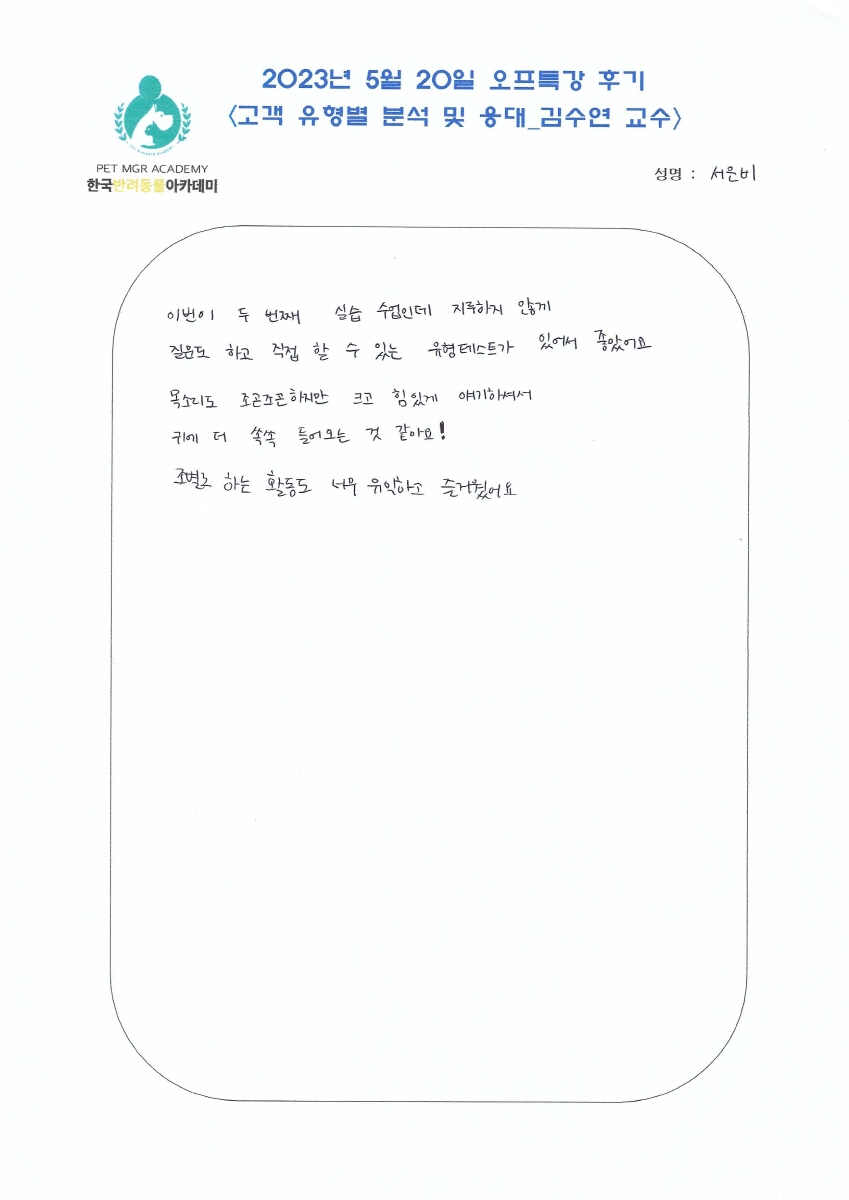 2023년 5월 20일 오프특강 후기
<고객 유형별 분석 및 응대_김수연 교수>
PET MGR ACADEMY
한국반려동물아카데미
성명 : 서은비
이번이 두 번째 실습 수업인데 지루하지 않게
질문도 하고 직접 할 수 있는 유형테스트가 있어서 좋았어요
목소리도 조곤조곤하지만 크고 힘있게 얘기하셔서
귀에 더 쏙쏙 들어오는 것 같아요!
조별로 하는 활동도 너무 유익하고 즐거웠어요